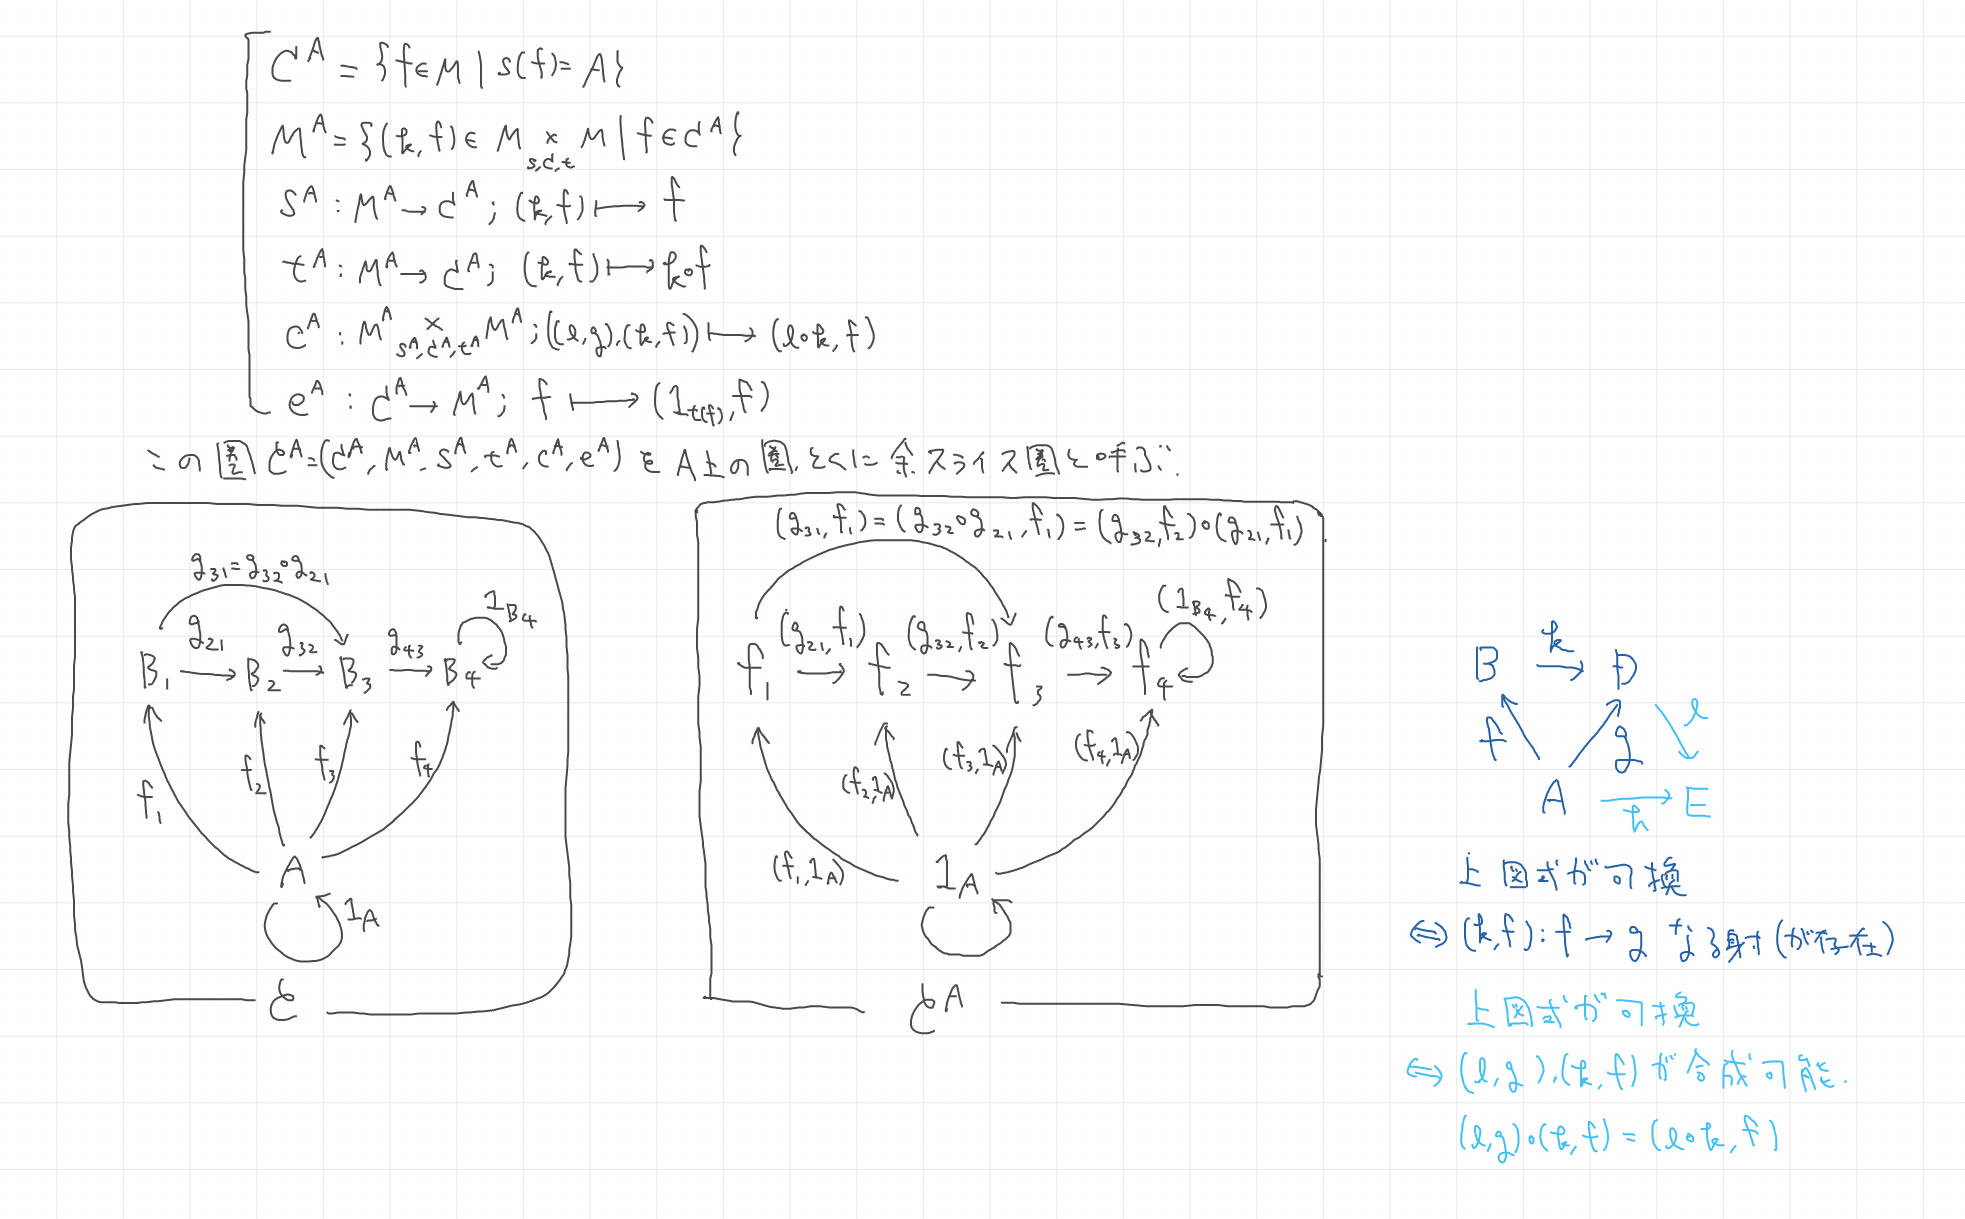 C^A = {f∈M | s(f)= A}
M^A = {(k, f) ∈ M ×_{s,C,t} M | f ∈ C^A}
s^A : M^A → C^A ; (k, f) ⟼ f
t^A : M^A → C^A ; (k, f) ⟼ k∘f
c^A : M^A ×_{s^A, C^A, t^A} M^A ; ((l, g), (k, f)) ⟼ (l∘k, f)
e^A : C^A → M^A ; f ⟼ (1_{t(f)}, f)
この圏 𝒞^A=(C^A, M^A, s^A, t^A, c^A, e^A) を A上の圏, とくに 余スライス圏と呼ぶ.
g₃₁=g₃₂∘g₂₁
g₂₁ g₃₂ g₄₃ 1_{B₄}
B₁ → B₂ → B₃ → B₄
f₁ f₂ f₃ f₄
A
1_A
𝒞
(g₃₁, f₁) = (g₃₂∘g₂₁, f₁) = (g₃₂, f₂)∘(g₂₁, f₁).
(g₂₁, f₁) (g₃₂, f₂) (g₄₃, f₃) (1_{B₄}, f₄)
f₁ → f₂ → f₃ → f₄
(f₁, 1_A) (f₂, 1_A) (f₃, 1_A) (f₄, 1_A)
1_A
𝒞^A
k
B → D
f g l
A → E
h
上図式が可換
⇔ (k, f) : f → g なる射(が存在)
上図式が可換
⇔ (l, g), (k, f) が合成可能.
(l, g)∘(k, f) = (l∘k, f)